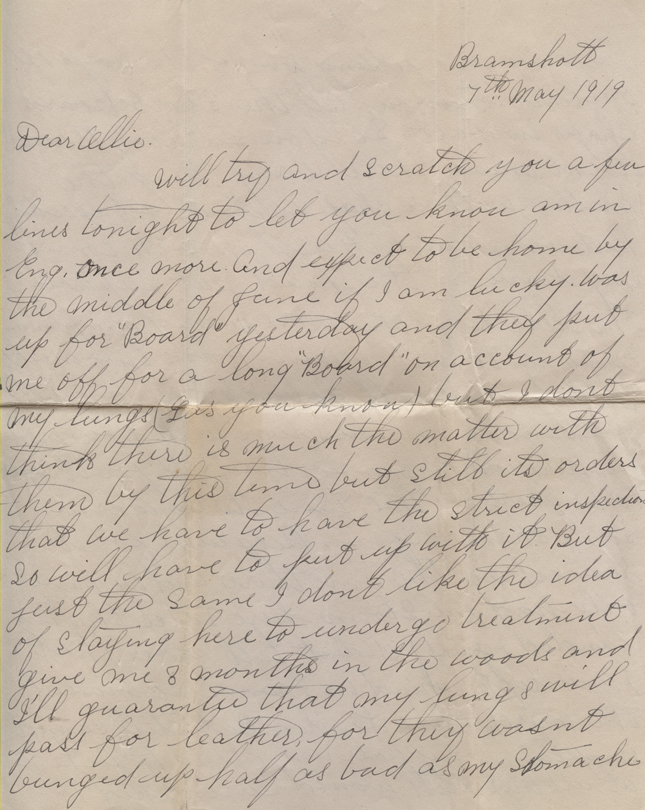 Bramshott
7th May 1919
Dear Allie.
will try and scratch you a few
lines tonight to let you know am in
Eng. once more. And expect to be home by
the middle of June if I am lucky. was
up for "Board" yesterday and they put
me off for a long "Board" on account of
my lungs (Gas you know) but I dont
think there is much the matter with
them by this time but still its orders
that we have to have the strict inspection
so will have to put up with it. But
just the same I dont like the idea
of staying here to undergo treatment
give me 8 months in the woods and
I'll guarantee that my lungs will
pass for leather. for they wasnt
bunged up half as bad as my stomache